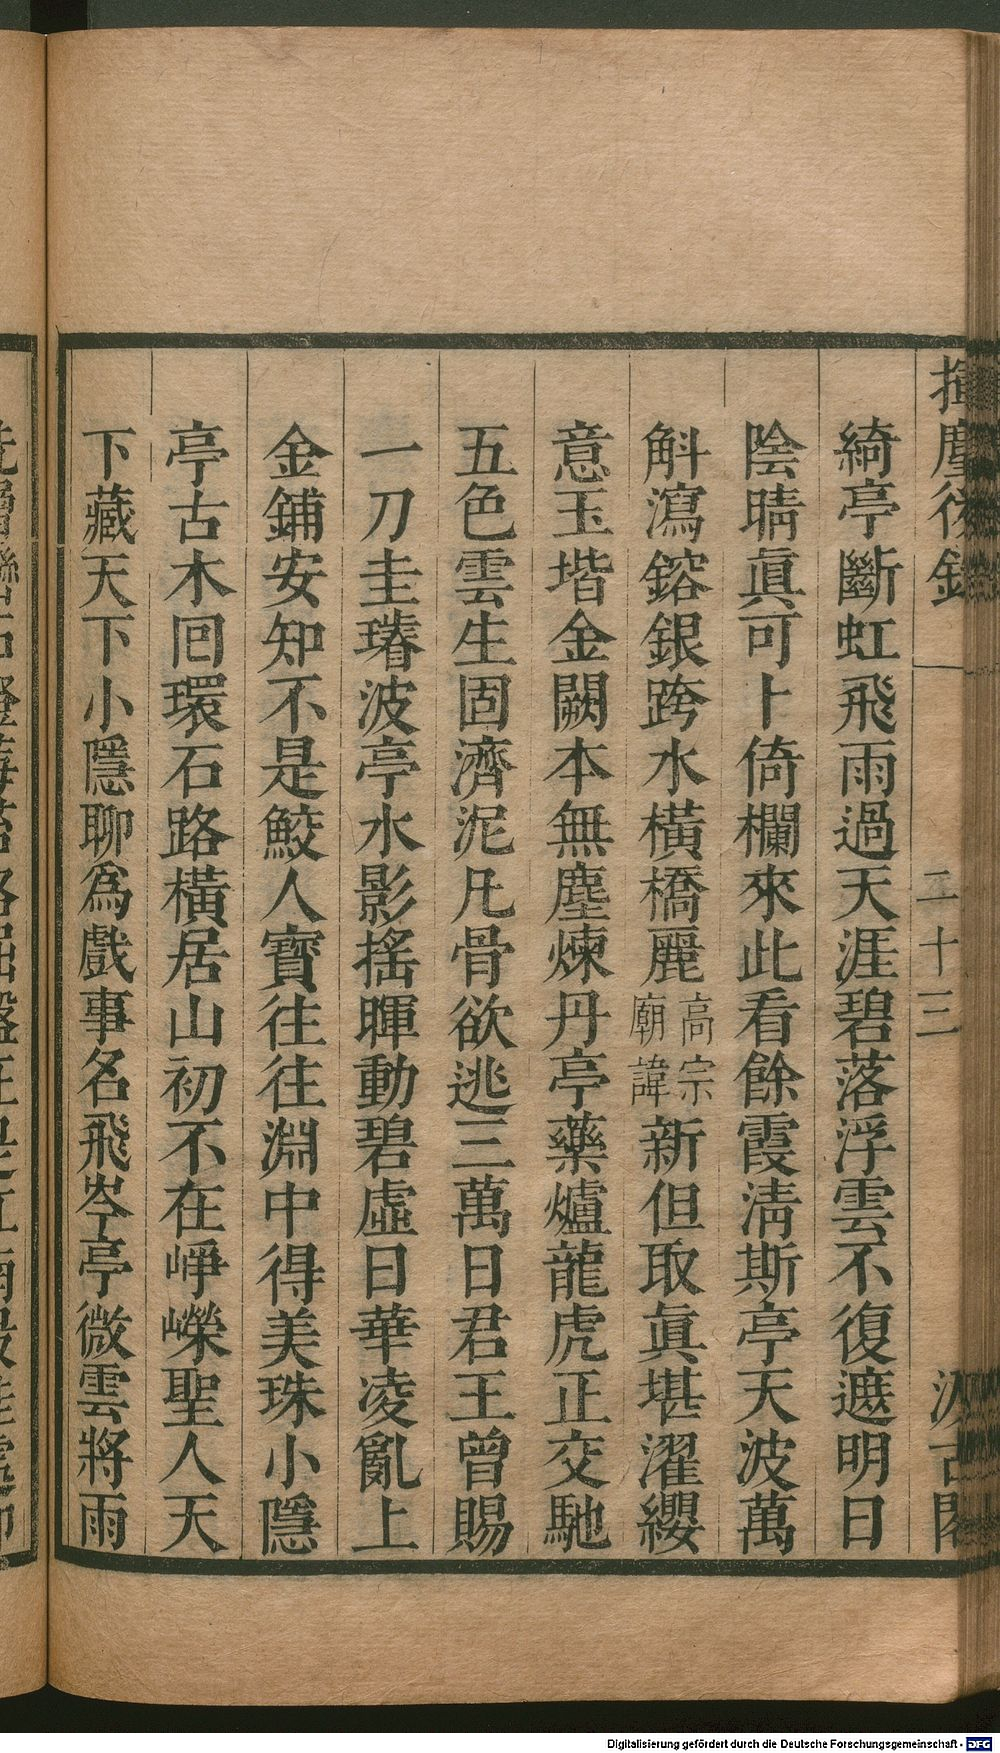 揮麈後錄
二十三
汲古閣
綺亭斷虹飛雨過天涯碧落浮雲不復遮明日
陰晴眞可卜倚欄來此看餘霞淸斯亭天波萬
斛瀉鎔銀跨水橫橋麗高宗廟諱新但取眞堪濯纓
意玉堦金闕本無塵煉丹亭藥爐龍虎正交馳
五色雲生固濟泥凡骨欲逃三萬日君王曾賜
一刀圭璿波亭水影搖暉動碧虛日華凌亂上
金鋪安知不是鮫人寶往往淵中得美珠小隱
亭古木回環石路橫居山初不在崢嶸聖人天
下藏天下小隱聊爲戲事名飛岑亭微雲將雨
Digitalisierung gefördert durch die Deutsche Forschungsgemeinschaft - DFG